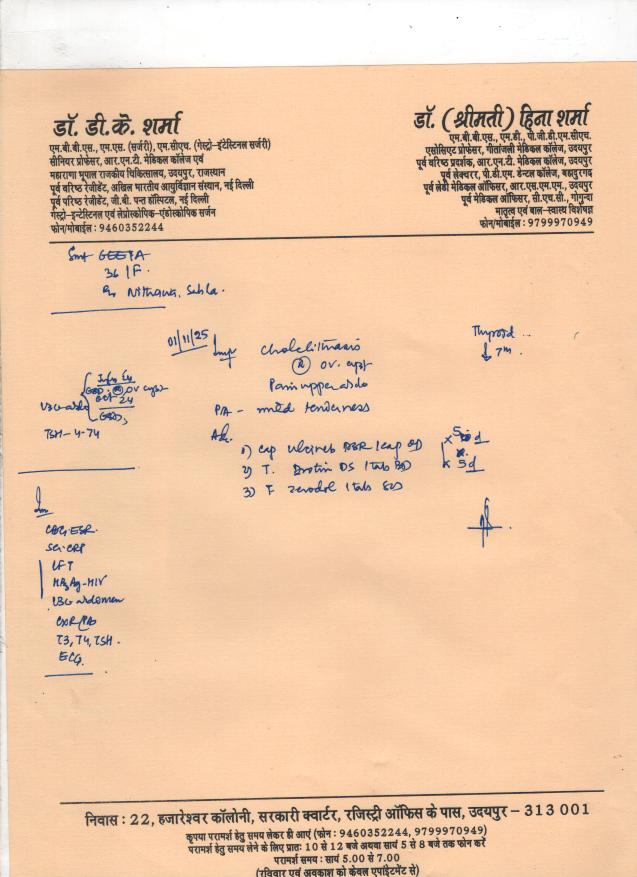 डॉ. डी.के. शर्मा
एम.बी.बी.एस., एम.एस. (सर्जरी), एम.सीएच. (गेस्ट्रो-इंटेस्टिनल सर्जरी)
सीनियर प्रोफेसर, आर.एन.टी. मेडिकल कॉलेज एवं
महाराणा भूपाल राजकीय चिकित्सालय, उदयपुर, राजस्थान
पूर्व वरिष्ठ रेजीडेंट, अखिल भारतीय आयुर्विज्ञान संस्थान, नई दिल्ली
पूर्व वरिष्ठ रेजीडेंट, जी.बी. पन्त हॉस्पिटल, नई दिल्ली
गेस्ट्रो-इन्टेस्टिनल एवं लेप्रोस्कोपिक-एंडोस्कोपिक सर्जन
फोन/मोबाईल : 9460352244
डॉ. (श्रीमती) हिना शर्मा
एम.बी.बी.एस., एम.डी., पी.जी.डी.एम.सीएच.
एसोसिएट प्रोफेसर, गीतांजली मेडिकल कॉलेज, उदयपुर
पूर्व वरिष्ठ प्रदर्शक, आर.एन.टी. मेडिकल कॉलेज, उदयपुर
पूर्व लेक्चरर, पी.डी.एम. डेन्टल कॉलेज, बहादुरगढ़
पूर्व लेडी मेडिकल ऑफिसर, आर.एस.एम.एम., उदयपुर
पूर्व मेडिकल ऑफिसर, सी.एच.सी., गोगुन्दा
मातृत्व एवं बाल-स्वास्थ्य विशेषज्ञ
फोन/मोबाईल : 9799970949
Smt GEETA
36 / F.
01/11/25 Imp Cholelithiasis
(R) ov. cyst
Pain upper abdo
P/A - mild tenderness
Thyroid ...
↓ 7m.
TSH - 4.74
Adv.
1) Cap DSR 1 cap OD
2) T. DS 1 tab BD
3) T. zerodol 1 tab
x 5d
CBC, ESR.
CRP
LFT
HBsAg - HIV
USG abdomen
CXR/PA
T3, T4, TSH.
ECG.
निवास : 22, हजारेश्वर कॉलोनी, सरकारी क्वार्टर, रजिस्ट्री ऑफिस के पास, उदयपुर – 313 001
कृपया परामर्श हेतु समय लेकर ही आएं (फोन : 9460352244, 9799970949)
परामर्श हेतु समय लेने के लिए प्रातः 10 से 12 बजे अथवा सायं 5 से 8 बजे तक फोन करें
परामर्श समय : सायं 5.00 से 7.00
(रविवार एवं अवकाश को केवल एपॉइंटमेंट से)